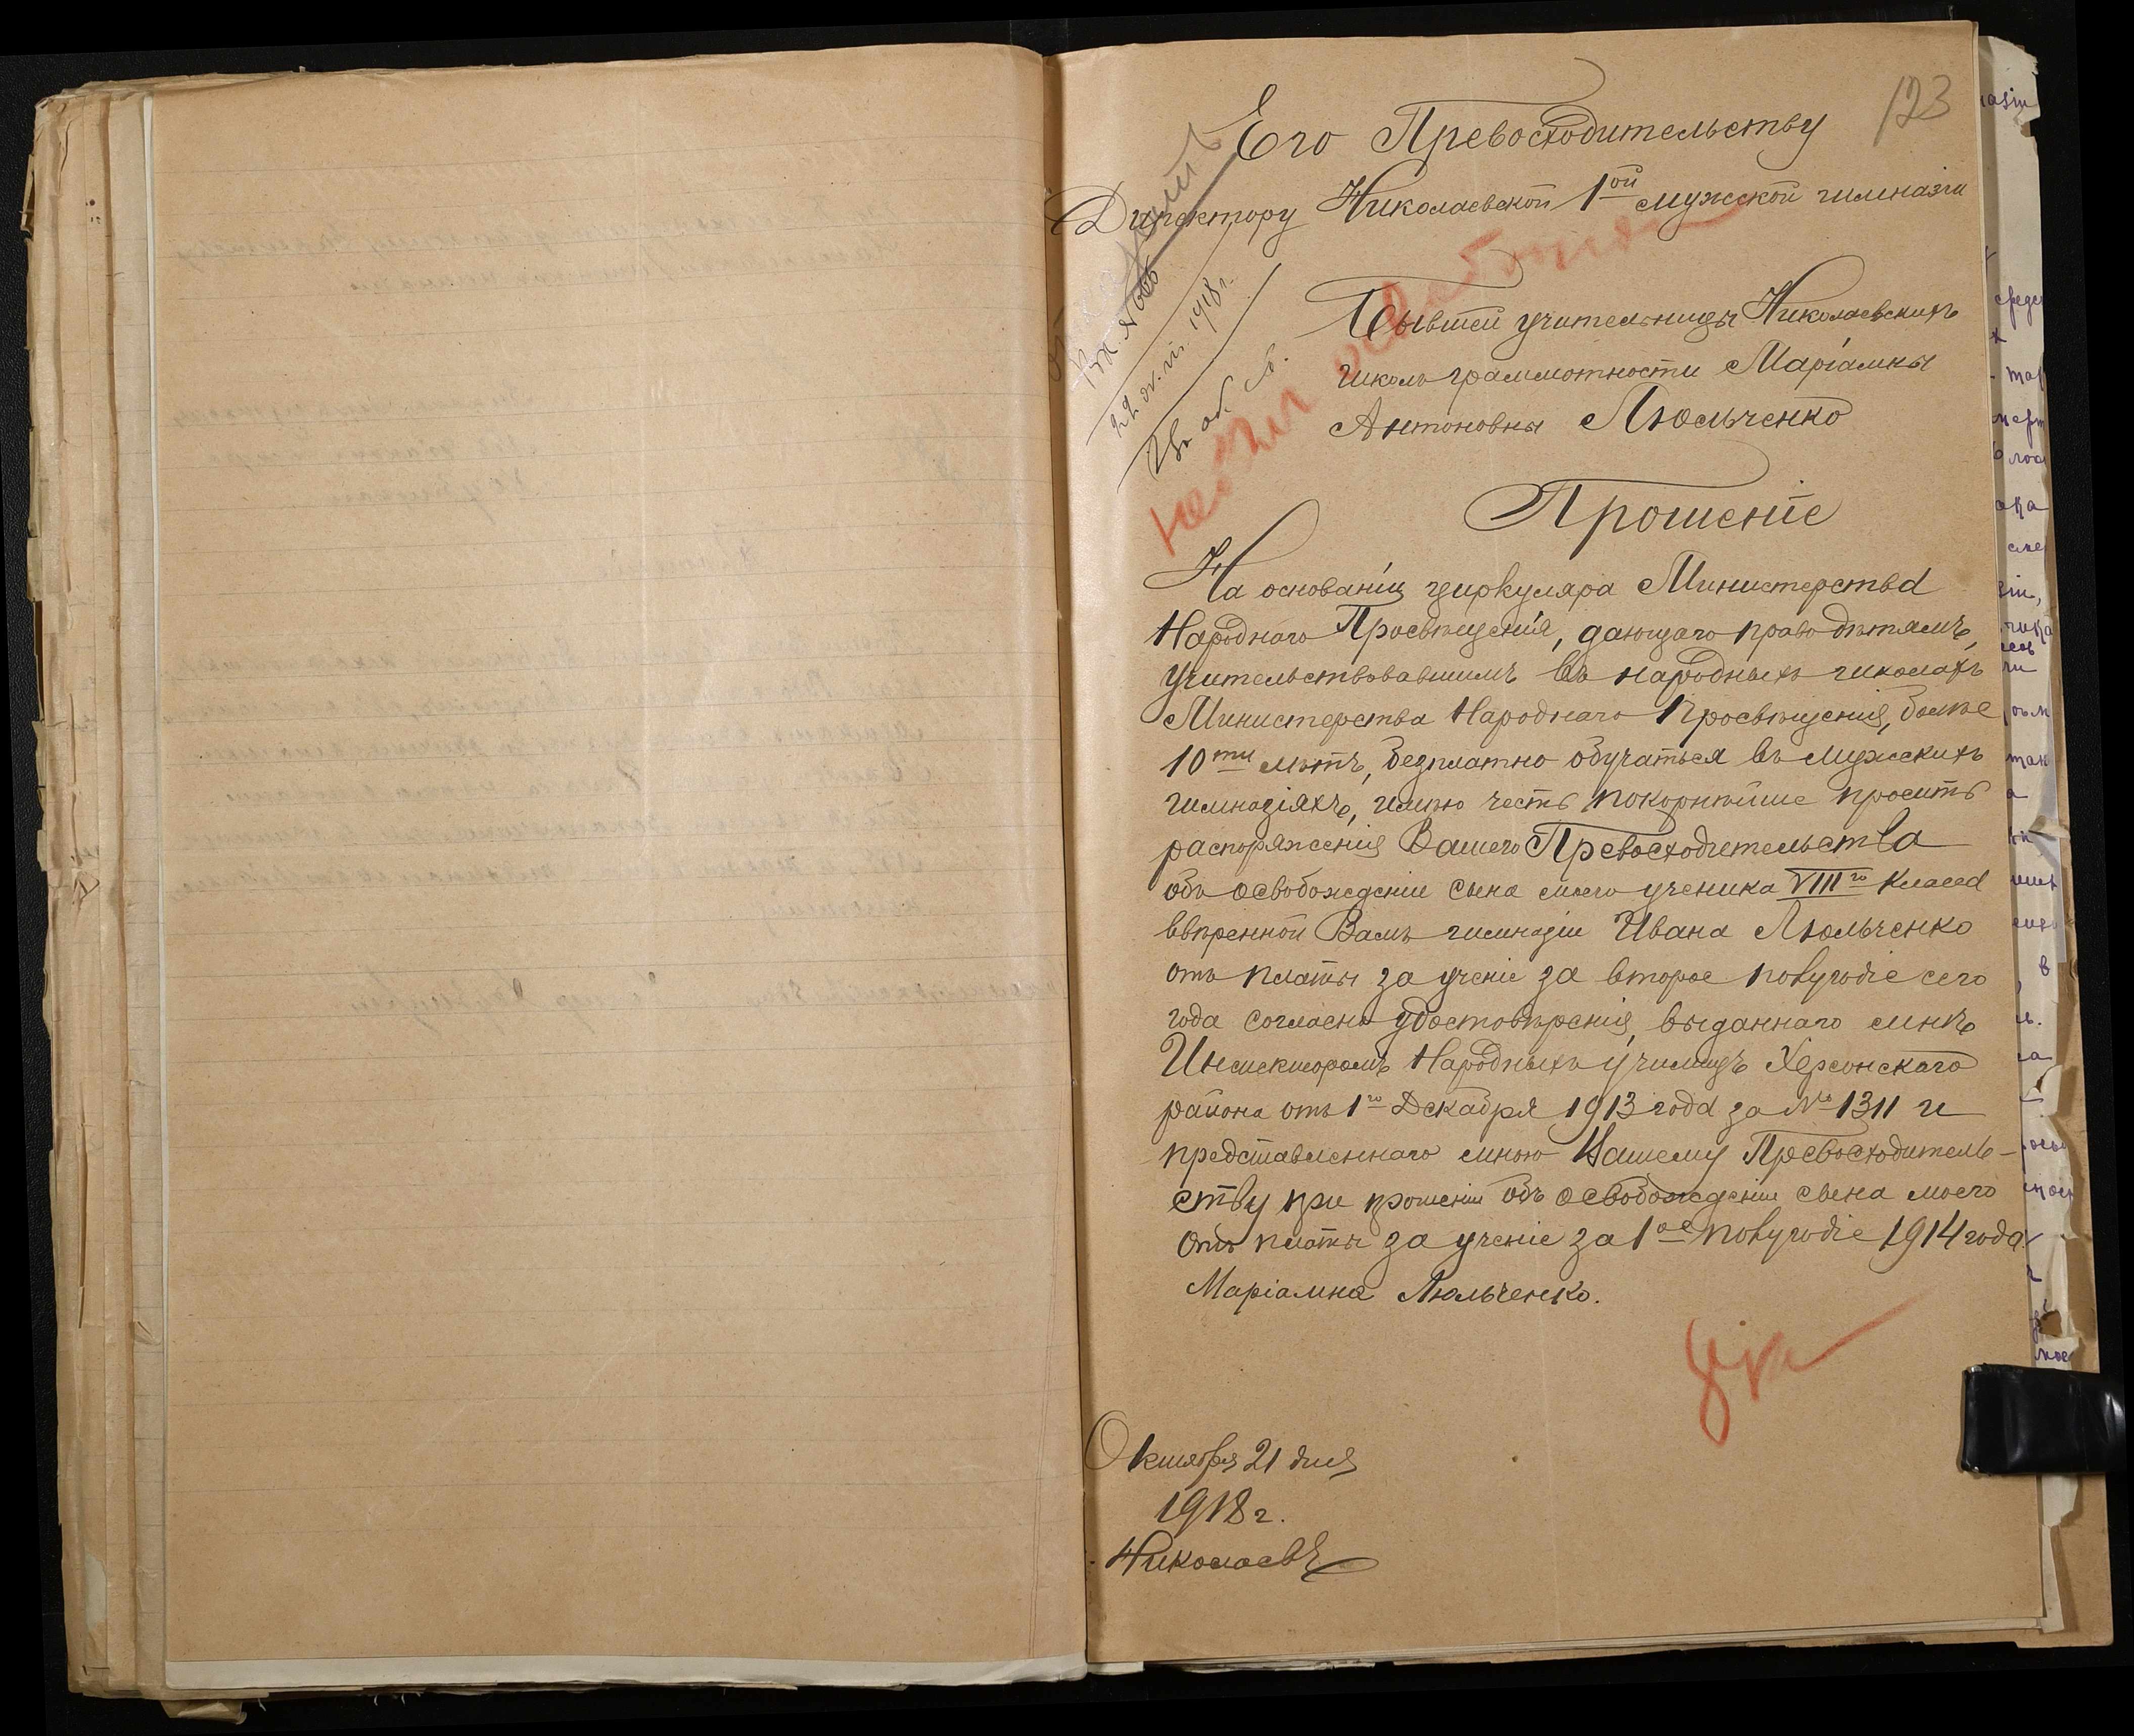 123
Его Превосходительству
Директору Николаевской 1ой мужской гимназіи
Вх. № 666
22 1918 г.
Бывшей учительницы Николаевскихъ
школъ граммотности Маріамны
Антоновны Люльченко
Прошеніе
На основаніи циркуляра Министерства
Народнаго Просвѣщенія, дающаго право дѣтямъ,
учительствовавшимъ въ народныхъ школахъ
Министерства Народнаго Просвѣщенія, болѣе
10ти лѣтъ, безплатно обучаться въ мужскихъ
гимназіяхъ, имѣю честь покорнѣйше просить
распоряженія Вашего Превосходительства
объ освобожденіи сына моего ученика VIIIго класса
ввѣренной Вамъ гимназіи Ивана Люльченко
отъ платы за ученіе за второе полугодіе сего
года согласно удостовѣренія, выданнаго мнѣ
Инспекторомъ Народныхъ училищъ Херсонскаго
района отъ 1го Декабря 1913 года за № 1311 и
представленнаго мною Вашему Превосходитель-
ству при прошеніи объ освобожденіи сына моего
отъ платы за ученіе за 1ое полугодіе 1914 года.
Маріамна Люльченко.
Октября 21 дня
1918 г.
Николаевъ